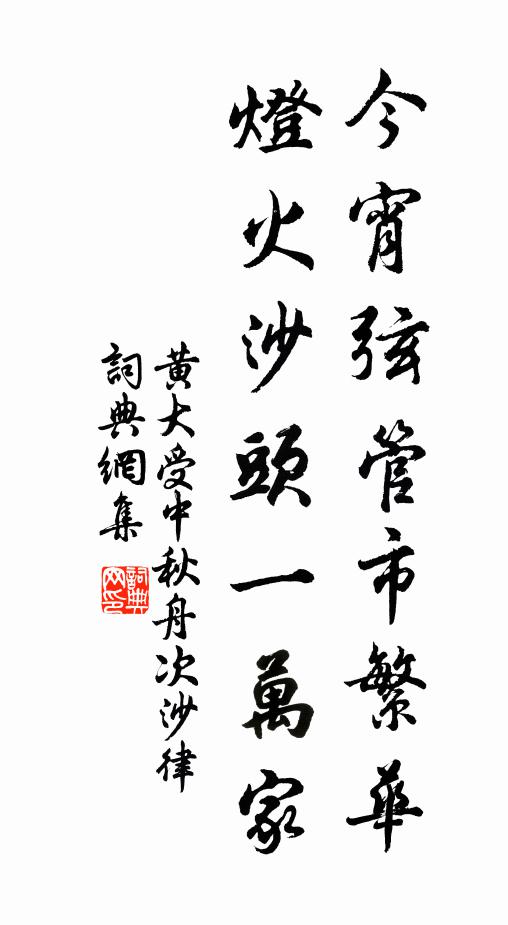 今宵弦管市繁華
燈火沙頭一萬家
黃大受中秋舟次沙律
詞典網集
詞典网印